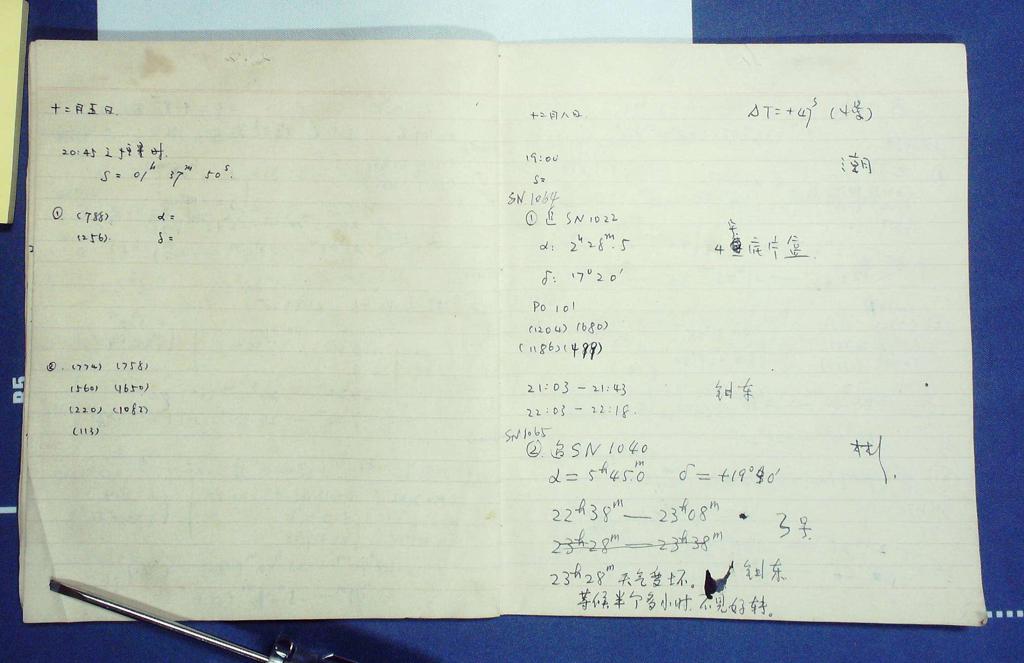 十二月五日
20:45 之恒星时.
S = 01ʰ 37ᵐ 50ˢ.
① (788) α =
(256) δ =
② (774) (758)
(560) (1650)
(220) (1082)
(113)
十二月八日 ΔT = +47ˢ (4号)
19:00
S=
SN 1064
① 追 SN 1022
α: 2ʰ28ᵐ.5
4 底片盒
δ: 17°20′
PO 101
(1204) (680)
(1186) (499)
21:03 — 21:43 钊东
22:03 — 22:18.
SN1065
② 追 SN 1040
α = 5ʰ45ᵐ.0 δ = +19°
22ʰ38ᵐ — 23ʰ08ᵐ 3号
23ʰ28ᵐ — 23ʰ38ᵐ
23ʰ28ᵐ 天气变坏。 钊东
等候半个多小时, 不见好转。